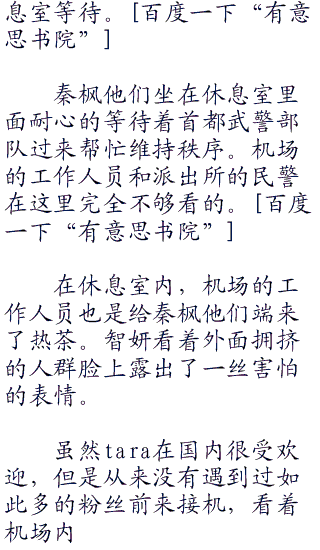 息室等待。[百度一下“有意
思书院”]
秦枫他们坐在休息室里
面耐心的等待着首都武警部
队过来帮忙维持秩序。机场
的工作人员和派出所的民警
在这里完全不够看的。[百度
一下“有意思书院”]
在休息室内，机场的工
作人员也是给秦枫他们端来
了热茶。智妍看着外面拥挤
的人群脸上露出了一丝害怕
的表情。
虽然tara在国内很受欢
迎，但是从来没有遇到过如
此多的粉丝前来接机，看着
机场内